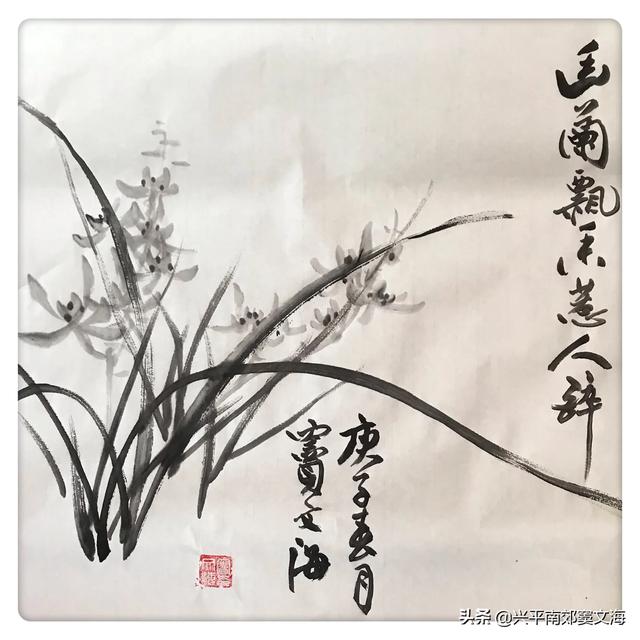 幽蘭飄香惹人醉
庚子春月
竇文海
头条 @兴平南郊窦文海